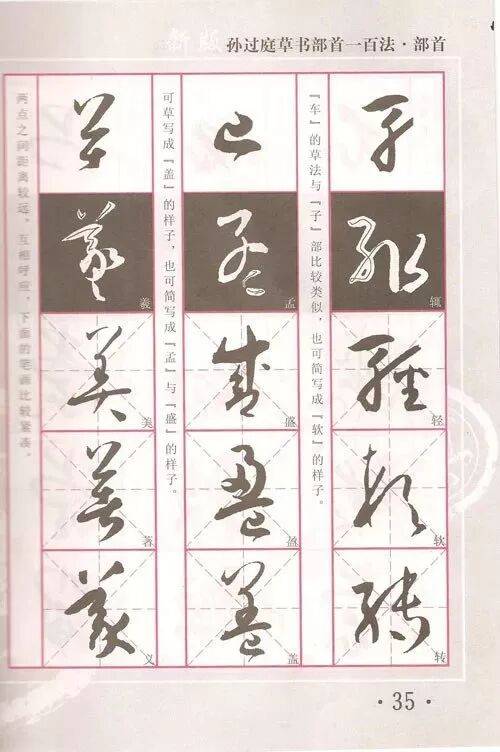 新版
孙过庭草书部首一百法·部首
辄
轻
软
转
『车』的草法与『子』部比较类似，也可简写成『软』的样子。
孟
盛
盈
盖
可草写成『盖』的样子，也可简写成『孟』与『盛』的样子。
羲
美
义
两点之间距离较远，互相呼应，下面的笔画比较紧凑。
·35·